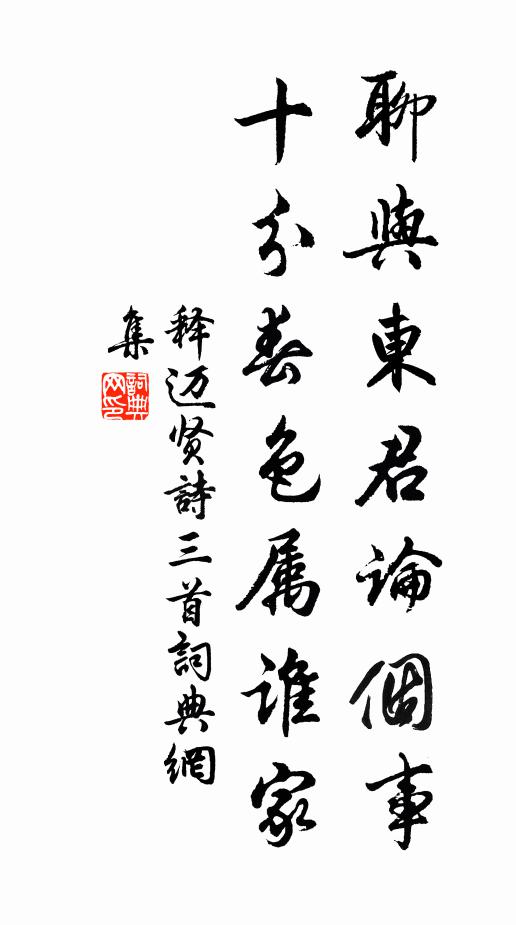 聊與東君論個事
十分春色属誰家
释迈贤詩三首詞典網
集
詞典网印